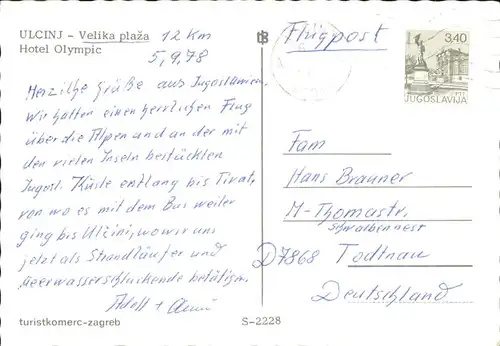 ULCINJ – Velika plaža 12 Km
Hotel Olympic
5.9.78
Flugpost
3,40
JUGOSLAVIJA
Herzliche Grüße aus Jugoslawien.
Wir hatten einen herrlichen Flug
über die Alpen und an der mit
den vielen Inseln bestückten
Jugosl. Küste entlang bis Tivat,
von wo es mit dem Bus weiter
ging bis Ulzini, wo wir uns
jetzt als Strandläufer und
Meerwasserschluckende betätigen.
Adolf +
Fam
Hans Brauner
M-Thomastr.
Schwalbennest
D7868 Todtnau
Deutschland
turistkomerc-zagreb
S-2228